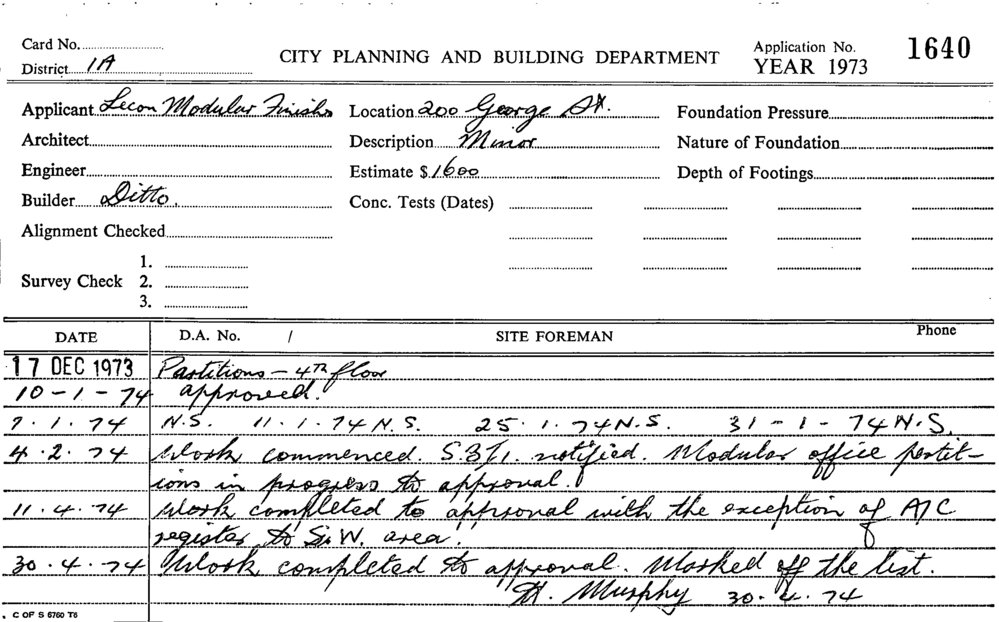 Card No.
CITY PLANNING AND BUILDING DEPARTMENT
Application No. 1640
District 1A
YEAR 1973
Applicant Lecon Modular Finishes Location 200 George St. Foundation Pressure
Architect Description Minor Nature of Foundation
Engineer Estimate $ 1600 Depth of Footings
Builder Ditto. Conc. Tests (Dates)
Alignment Checked
1.
Survey Check 2.
3.
DATE D.A. No. / SITE FOREMAN Phone
17 DEC 1973 Partitions - 4TH floor
10-1-74 approved.
7.1.74 N.S. 11.1.74 N.S. 25.1.74 N.S. 31-1-74 N.S.
4.2.74 Work commenced. notified. Modular office partit-
ions in progress to approval.
11.4.74 Work completed to approval with the exception of A/C
register to S.W. area.
30.4.74 Work completed to approval. Marked off the list.
Murphy 30.4.74
C OF S 6760 T6